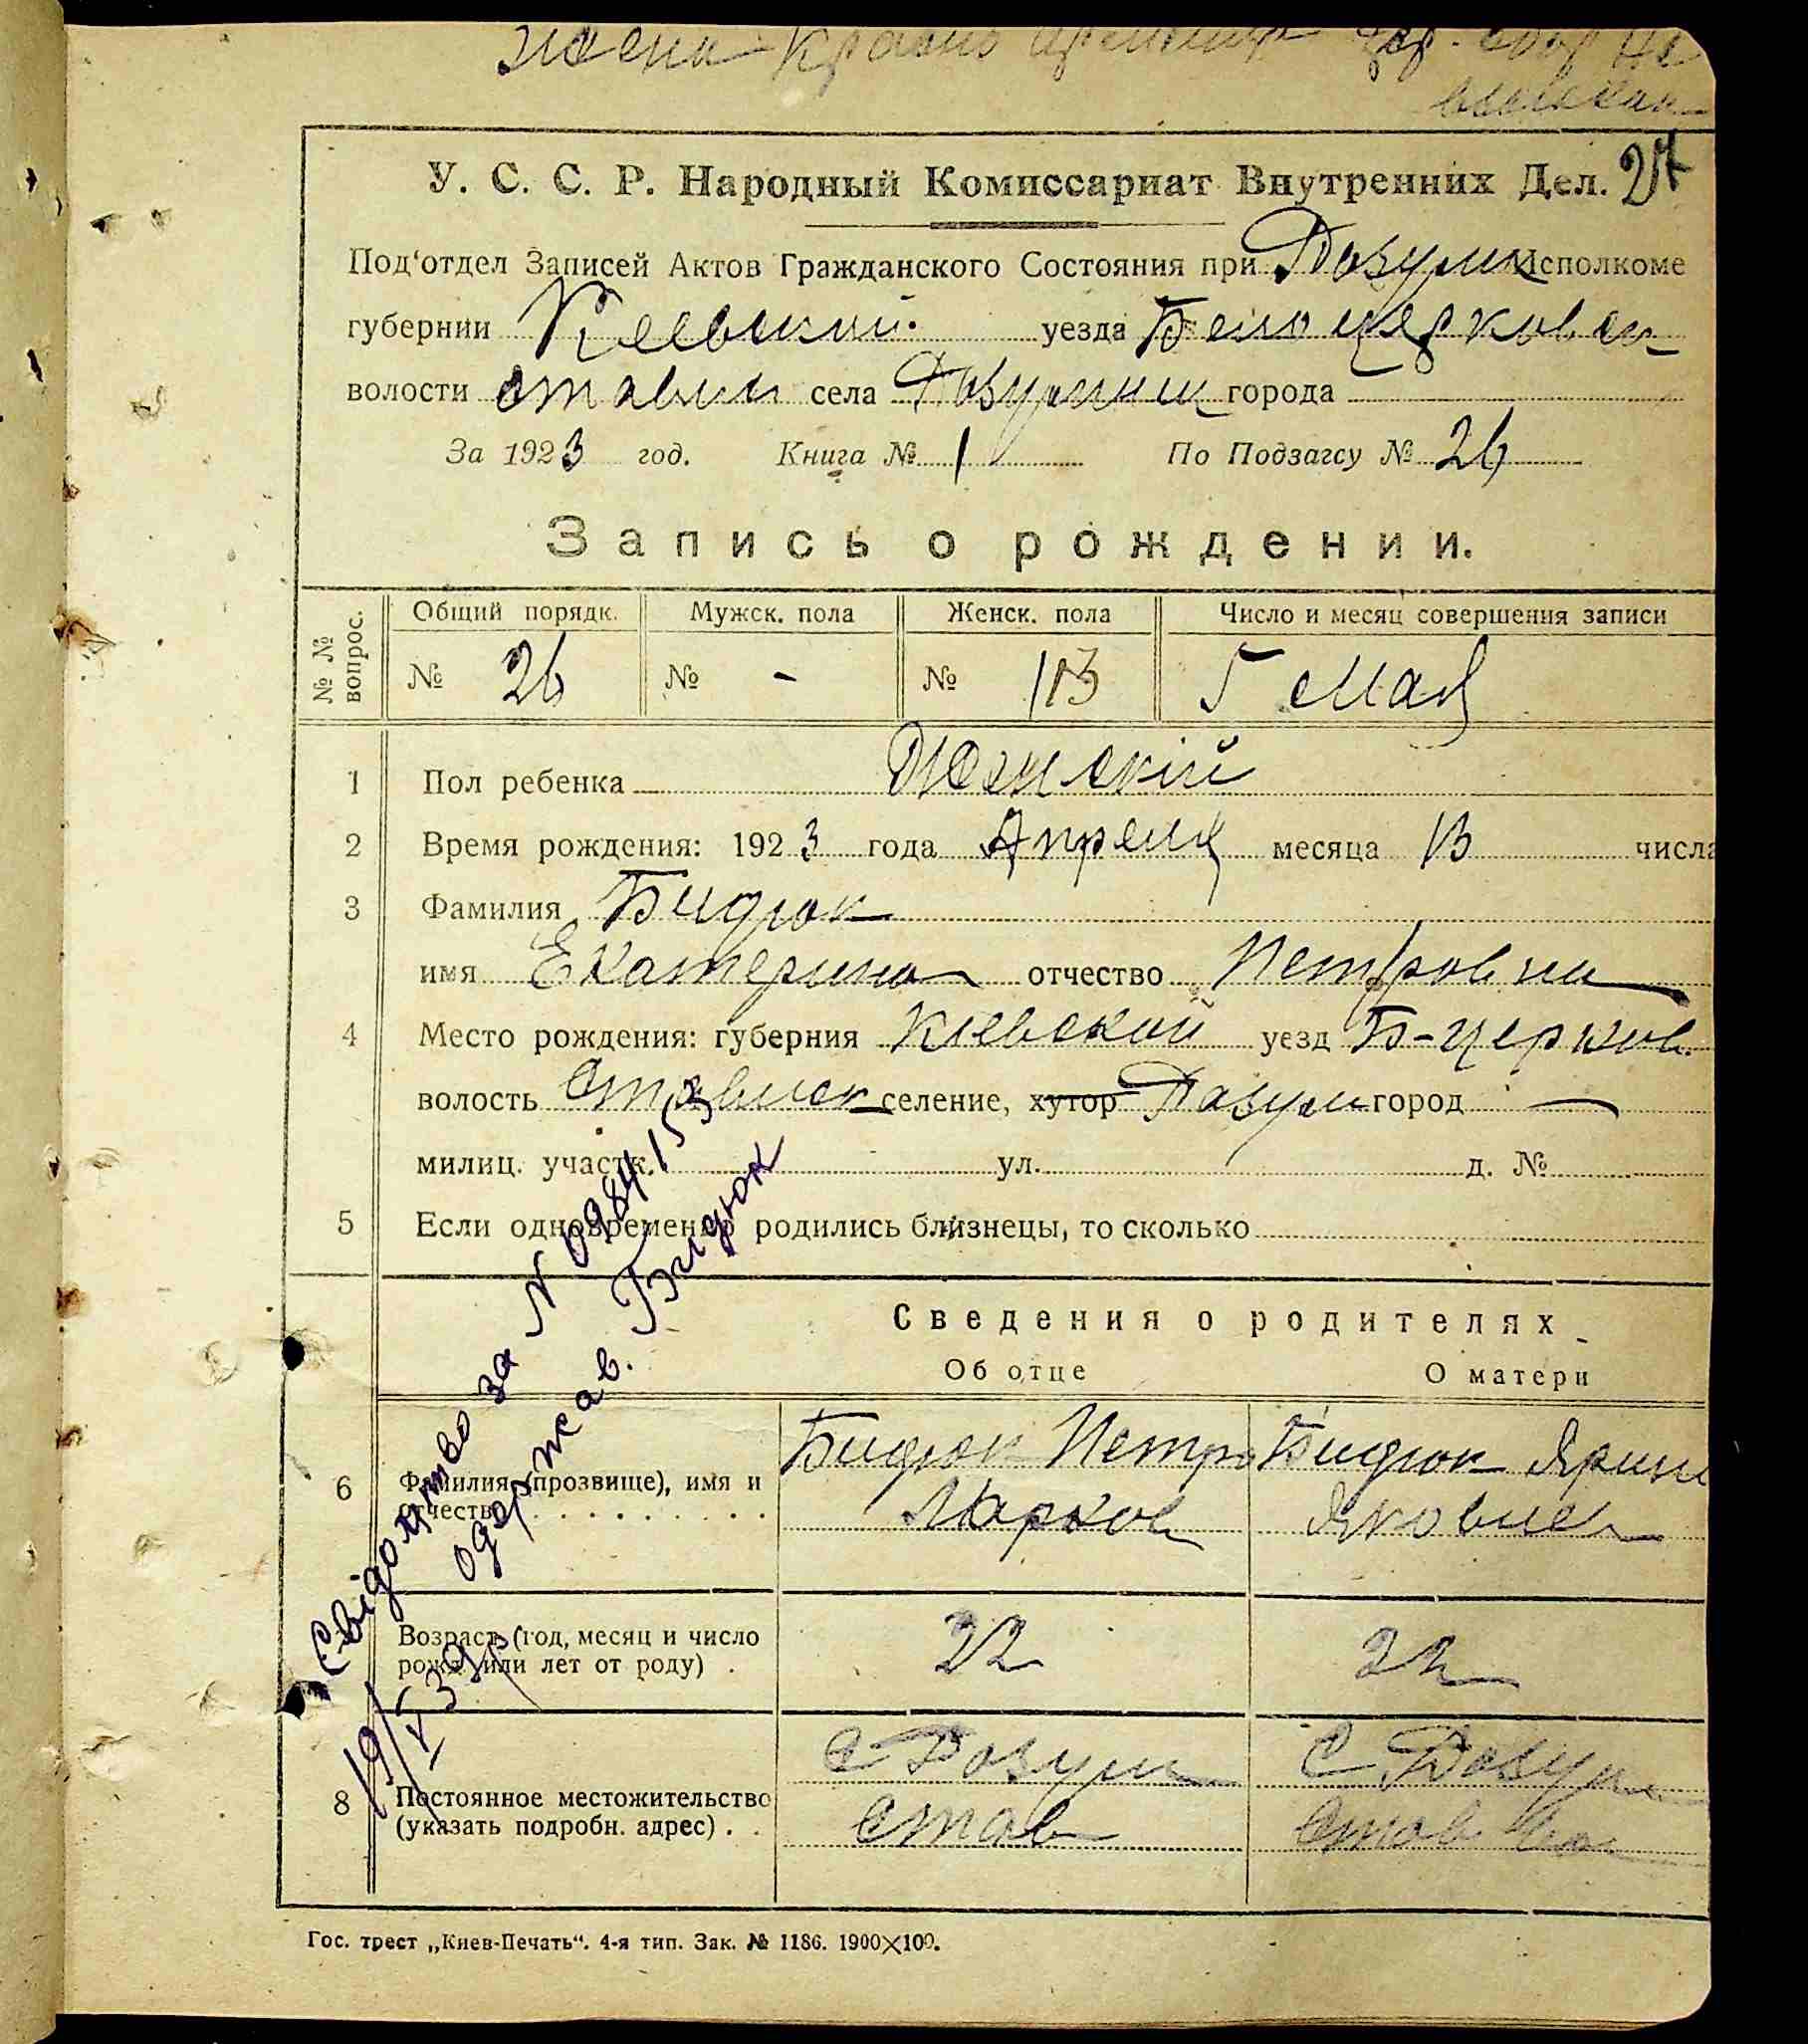 У. С. С. Р. Народный Комиссариат Внутренних Дел. 27
Под‘отдел Записей Актов Гражданского Состояния при Розумн Исполкоме
губернии Киевький. уезда Белоцерковск
волости ставис села города
За 1923 год. Книга № 1 По Подзагсу № 26
Запись о рождении.
№№ вопрос.
Общий порядк. Мужск. пола Женск. пола Число и месяц совершения записи
№ 26 № - № 13 Мая
1 Пол ребенка Женскій
2 Время рождения: 1923 года Апреля месяца 13 числа
3 Фамилия Бидюк
имя Екатерина отчество Петровна
4 Место рождения: губерния Киевской уезд Б-церков.
волость Стависк селение, хутор город —
милиц. участк. ул. д. №
5 Если одновременно родились близнецы, то сколько
Сведения о родителях
Об отце О матери
6 Фамилия (прозвище), имя и
отчество
Бидюк Петро
Марков
Бидюк Ярина
Яковлев
Возраст (год, месяц и число
рожд. или лет от роду) .
22 22
8 Постоянное местожительство
(указать подробн. адрес) . .
С
Став
С
Став
Свідоцтво за N 0984153
одержав. Бидюк
19/V 39р
Гос. трест „Киев-Печать“. 4-я тип. Зак. № 1186. 1900×100.